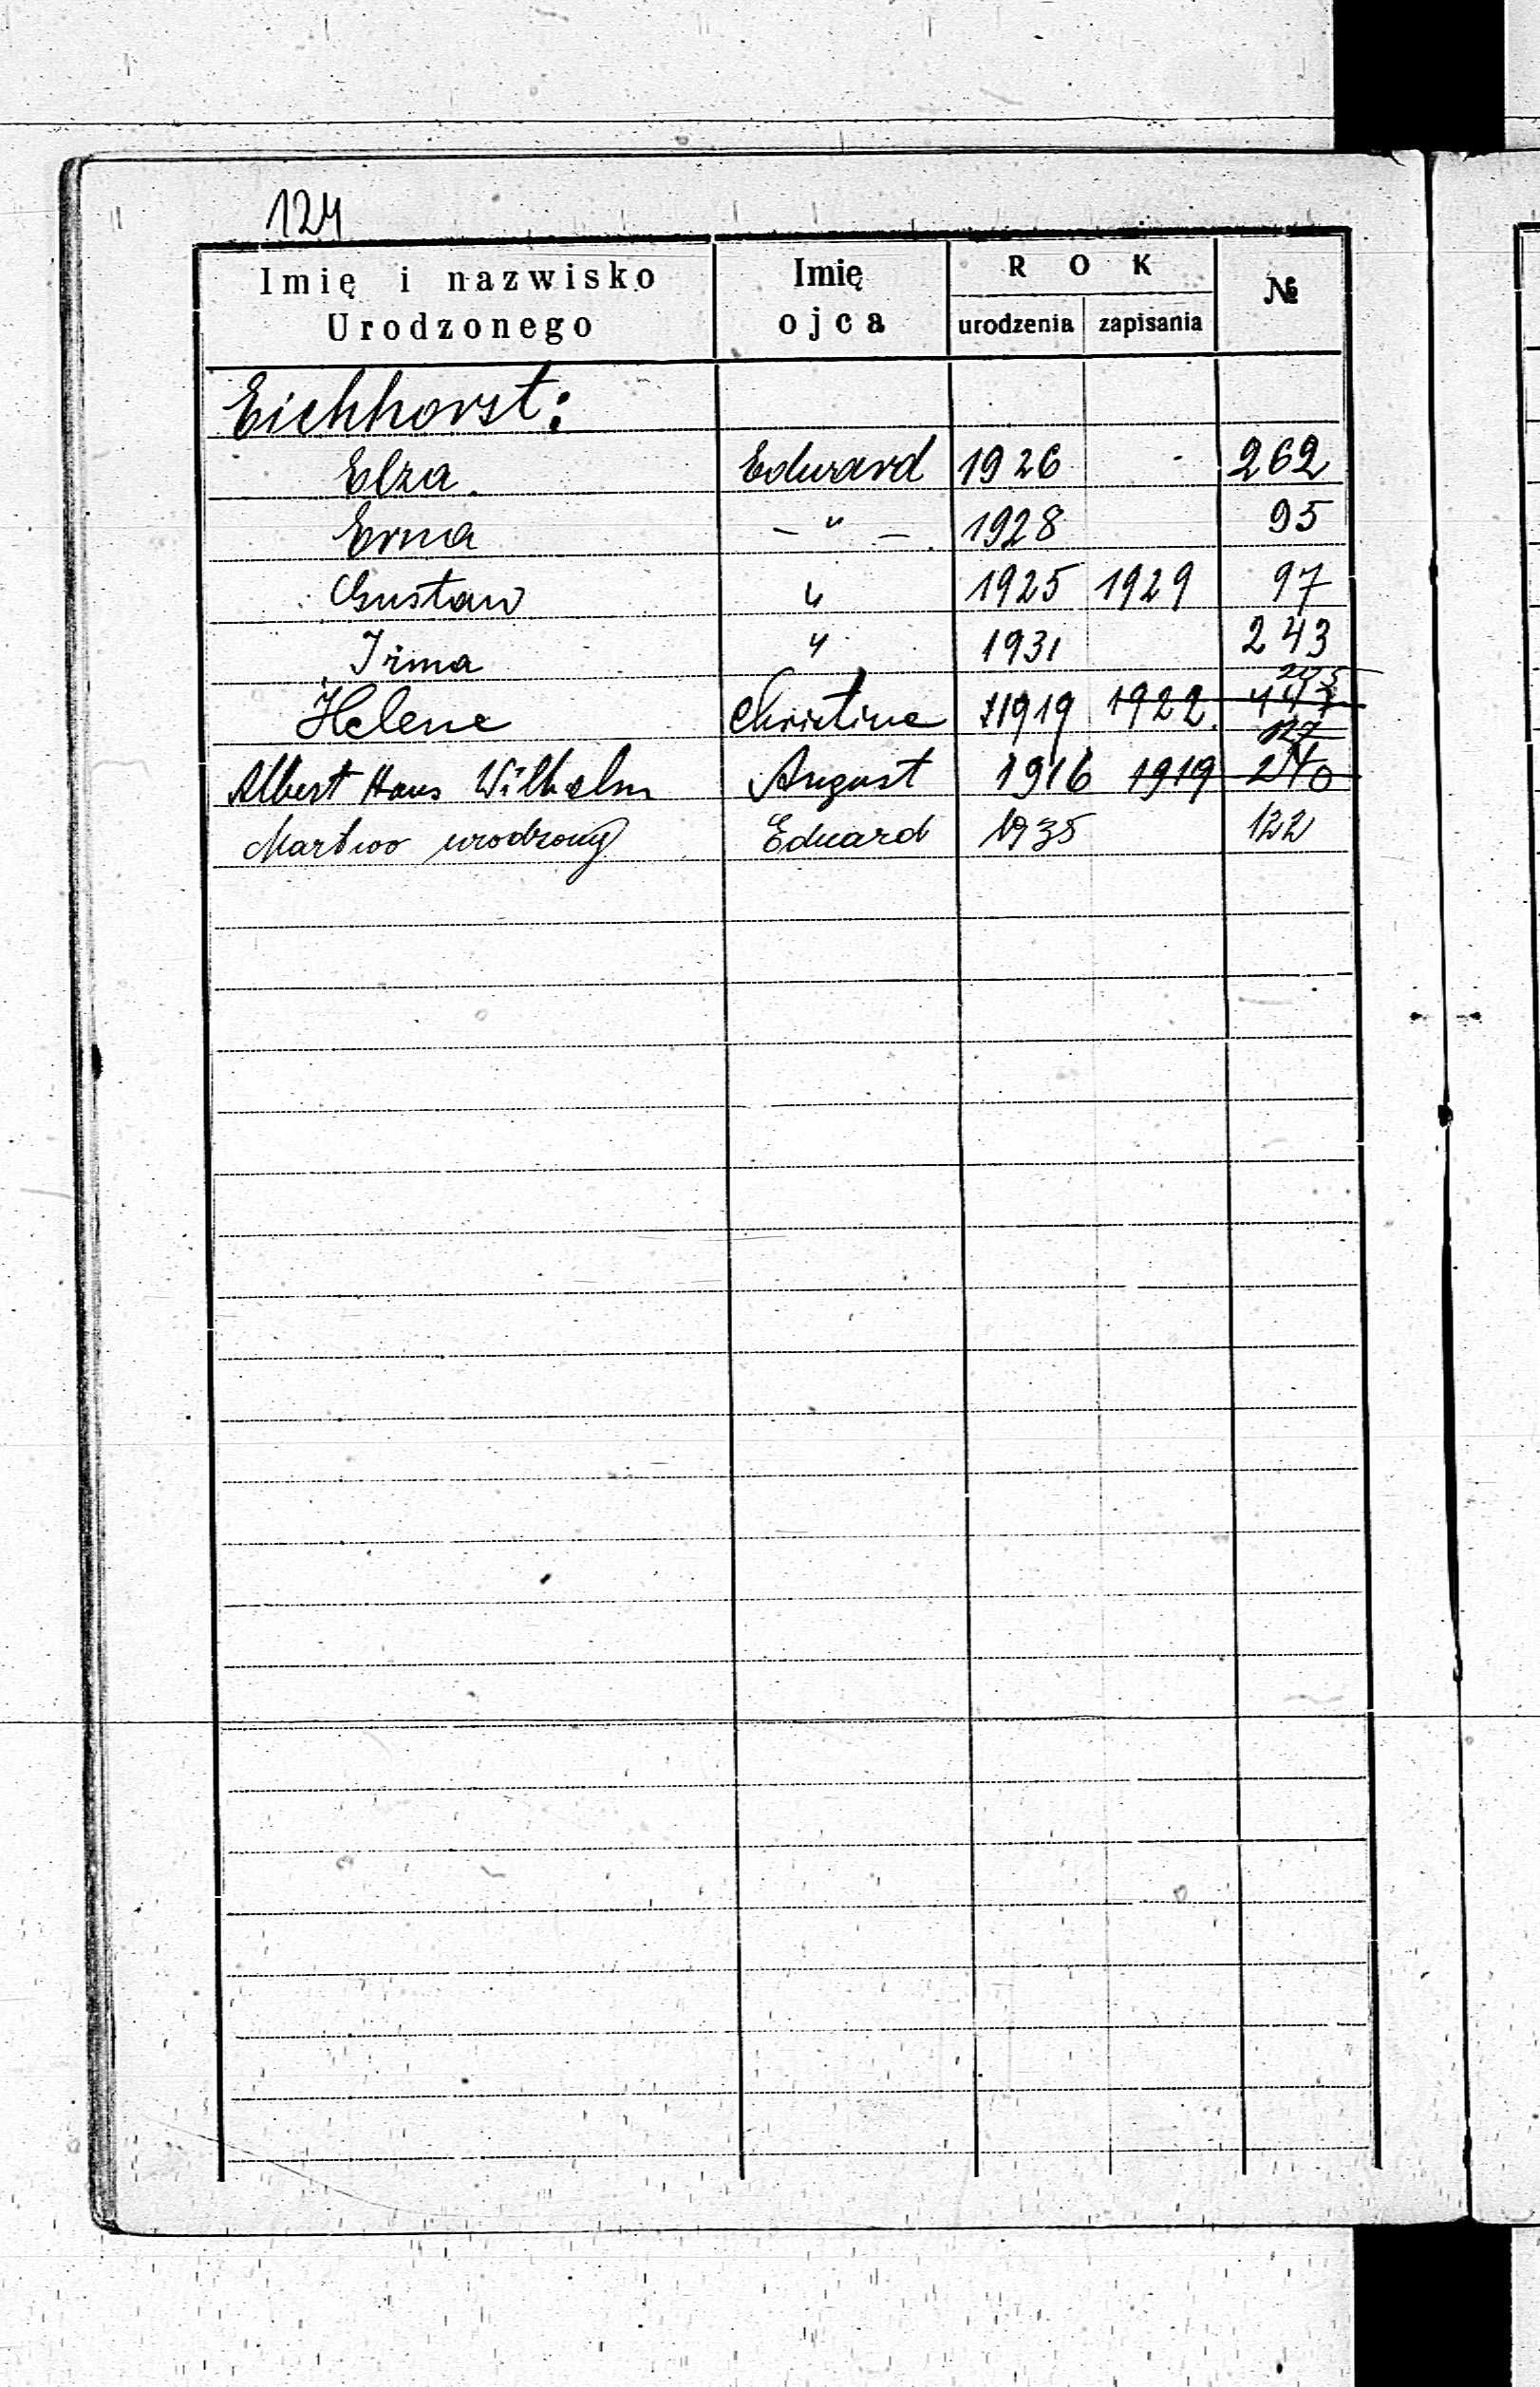 124
Imię i nazwisko Urodzonego Imię ojca ROK urodzenia zapisania №
Eichhorst:
Elza. Edward 1926 262
Erna — " — 1928 95
Gustaw " 1925 1929 97
Irma " 1931 243
Helene Christine 1919 1922.
127
Albert Hans Wilhelm August 1916 1919 240
Martwo urodzony Eduard 1935 122